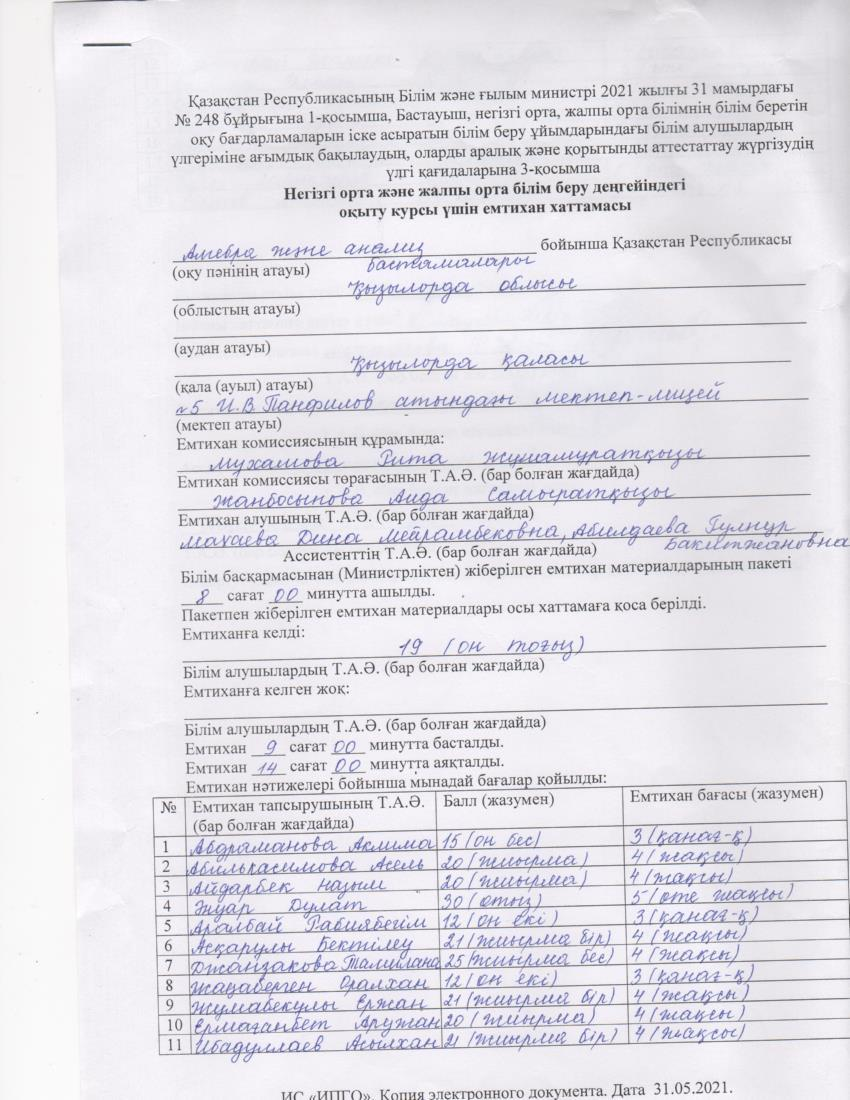 Қазақстан Республикасының Білім және ғылым министрі 2021 жылғы 31 мамырдағы
№ 248 бұйрығына 1-қосымша, Бастауыш, негізгі орта, жалпы орта білімнің білім беретін
оқу бағдарламаларын іске асыратын білім беру ұйымдарындағы білім алушылардың
үлгеріміне ағымдық бақылаудың, оларды аралық және қорытынды аттестаттау жүргізудің
үлгі қағидаларына 3-қосымша
Негізгі орта және жалпы орта білім беру деңгейіндегі
оқыту курсы үшін емтихан хаттамасы
Алгебра және анализ бойынша Қазақстан Республикасы
(оқу пәнінің атауы) бастамалары
Қызылорда облысы
(облыстың атауы)
(аудан атауы)
Қызылорда қаласы
(қала (ауыл) атауы)
№5 И.В.Панфилов атындағы мектеп-лицей
(мектеп атауы)
Емтихан комиссиясының құрамында:
Мухамова Рита Жұмамұратқызы
Емтихан комиссиясы төрағасының Т.А.Ә. (бар болған жағдайда)
Жанбосынова Аида Самыратқызы
Емтихан алушының Т.А.Ә. (бар болған жағдайда)
Махаева Дина Мейрамбековна, Абилдаева Гулнұр
Ассистенттің Т.А.Ә. (бар болған жағдайда) Бакытжановна
Білім басқармасынан (Министрліктен) жіберілген емтихан материалдарының пакеті
8 сағат 00 минутта ашылды.
Пакетпен жіберілген емтихан материалдары осы хаттамаға қоса берілді.
Емтиханға келді:
19 (он тоғыз)
Білім алушылардың Т.А.Ә. (бар болған жағдайда)
Емтиханға келген жоқ:
Білім алушылардың Т.А.Ә. (бар болған жағдайда)
Емтихан 9 сағат 00 минутта басталды.
Емтихан 14 сағат 00 минутта аяқталды.
Емтихан нәтижелері бойынша мынадай бағалар қойылды:
№ Емтихан тапсырушының Т.А.Ә. Балл (жазумен) Емтихан бағасы (жазумен)
(бар болған жағдайда)
1 Абдраманова Аклима 15 (он бес) 3 (қанағ-қ)
2 Абилькасимова Асель 20 (жиырма) 4 (жақсы)
3 Айдарбек Назым 20 (жиырма) 4 (жақсы)
4 Әнуар Дулат 30 (отыз) 5 (өте жақсы)
5 Аралбай Рабиябегім 12 (он екі) 3 (қанағ-қ)
6 Асқарулы Бектілеу 21 (жиырма бір) 4 (жақсы)
7 Джанзакова 25 (жиырма бес) 4 (жақсы)
8 Жаңаберген Оралхан 12 (он екі) 3 (қанағ-қ)
9 Жумабекулы Ержан 21 (жиырма бір) 4 (жақсы)
10 Ермаганбет Аружан 20 (жиырма) 4 (жақсы)
11 Ибадуллаев Асылхан 21 (жиырма бір) 4 (жақсы)
ИС «ИПГО». Копия электронного документа. Дата 31.05.2021.